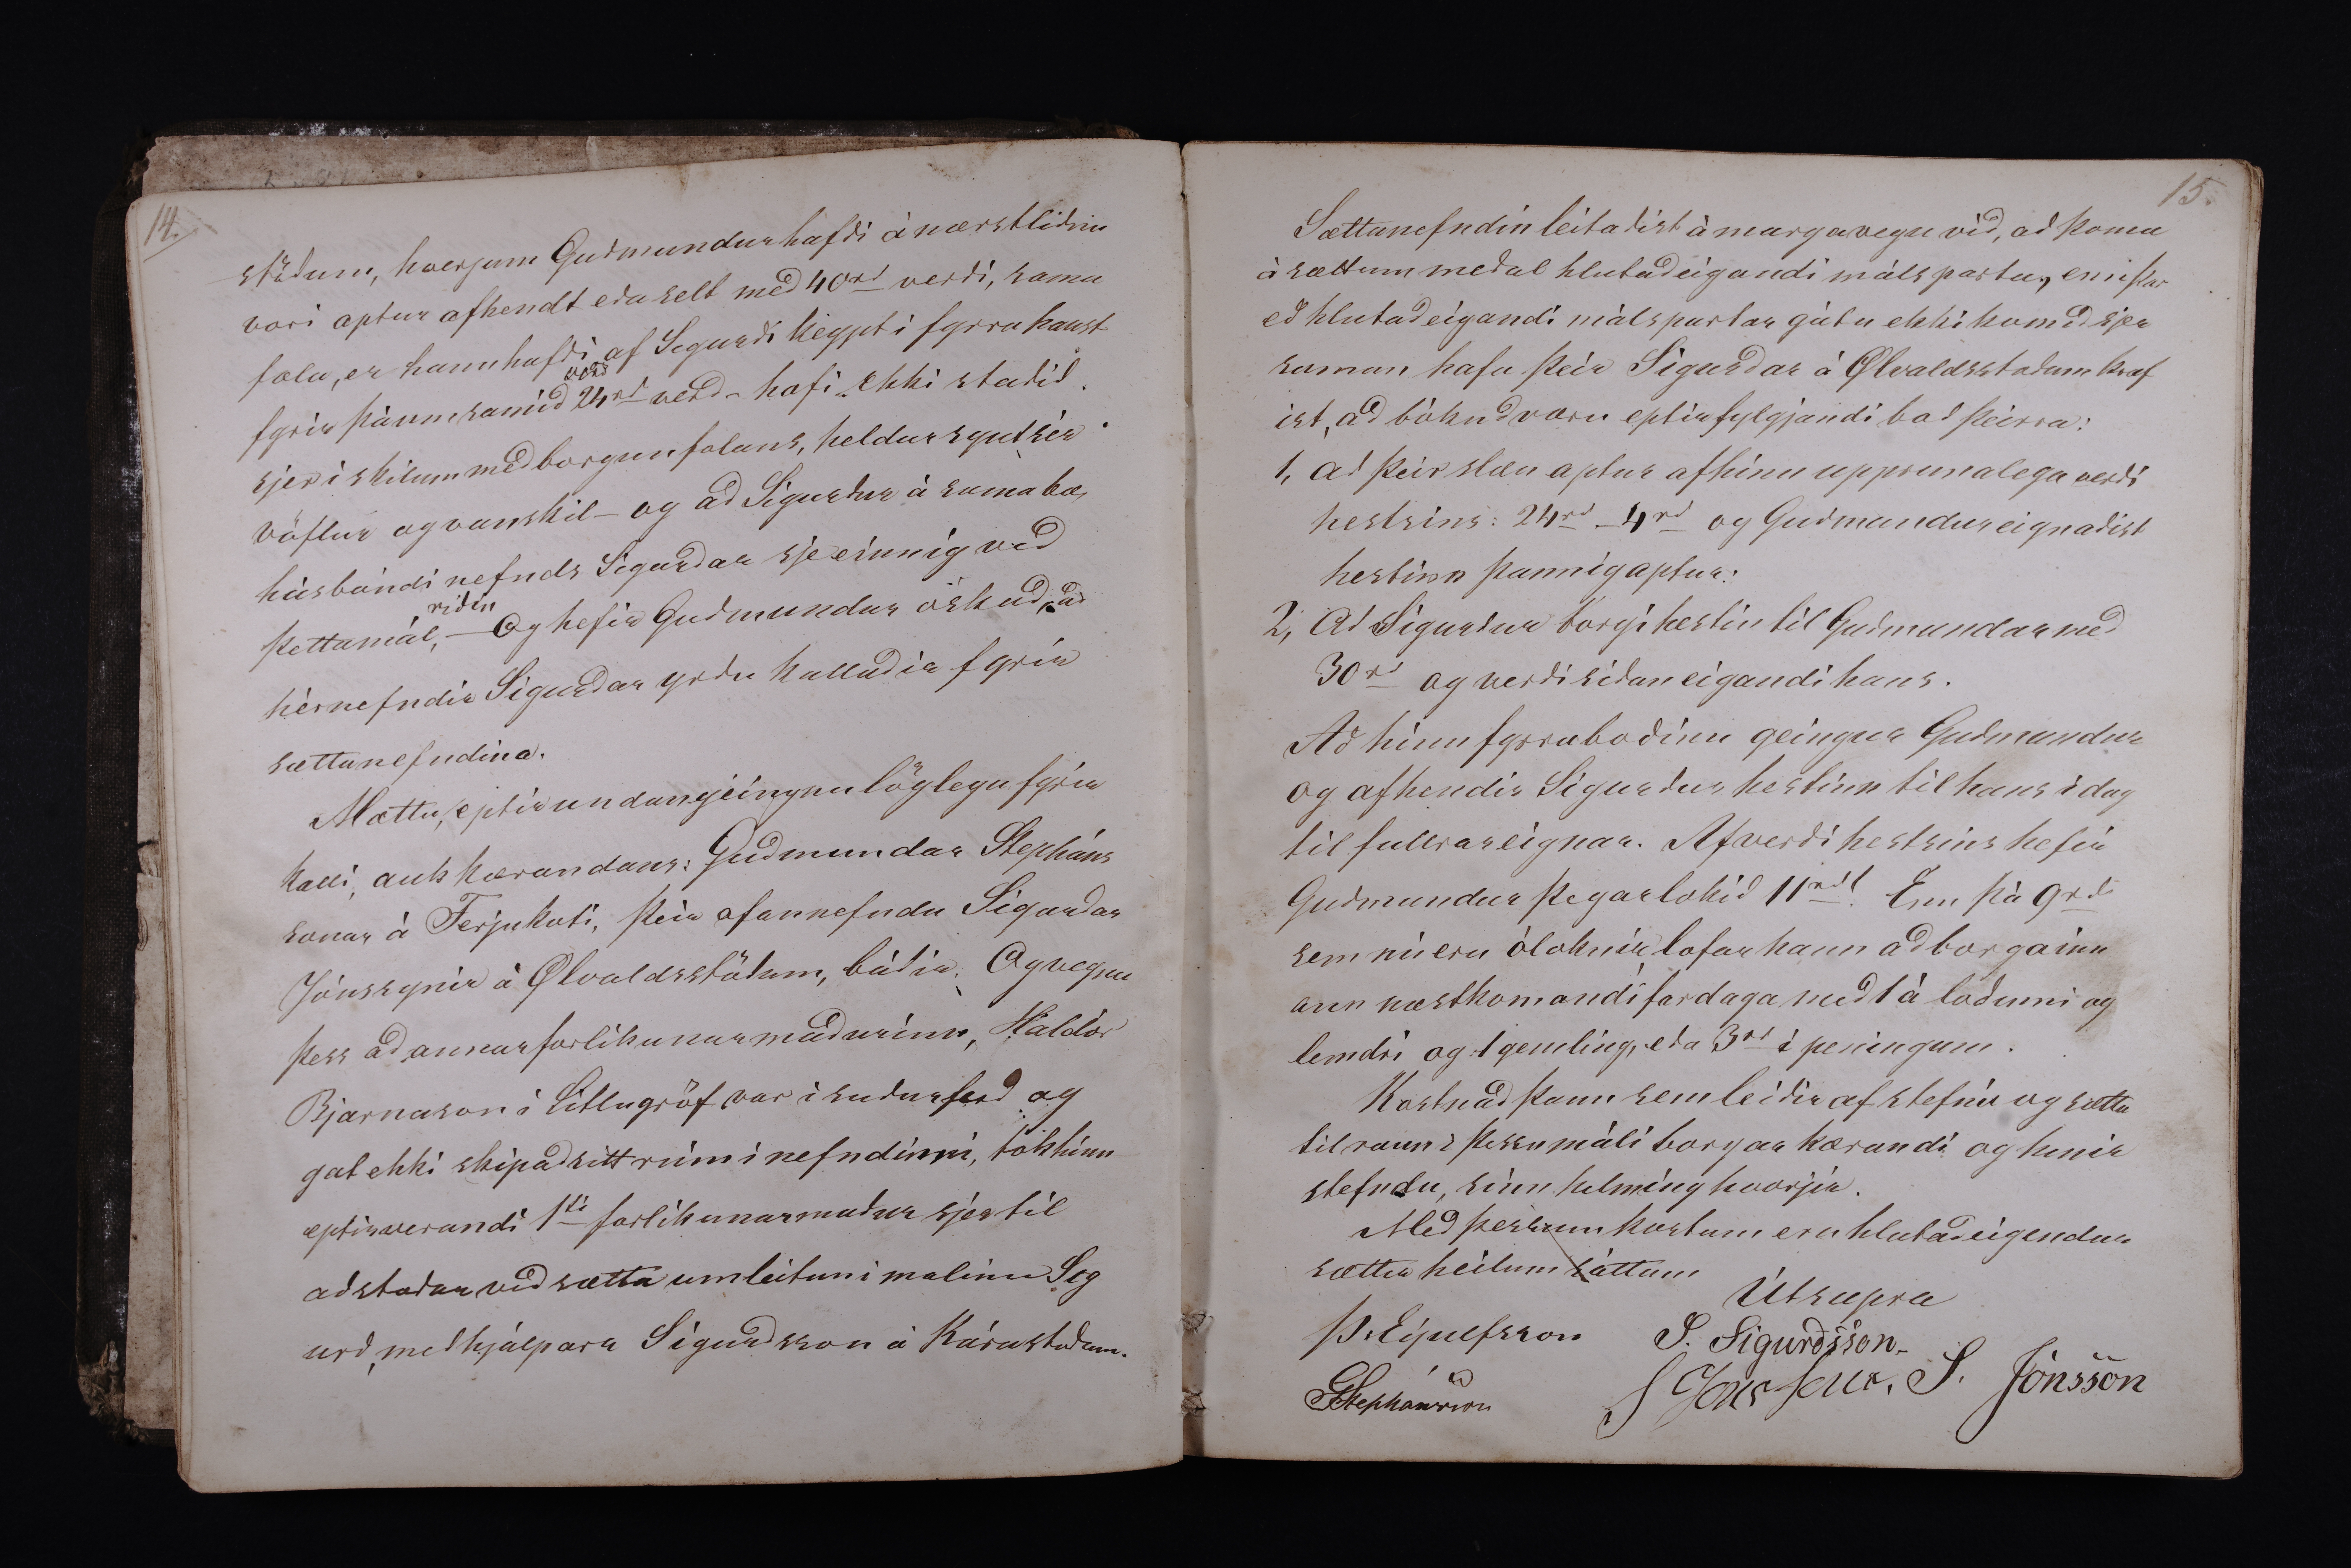 14.
stöðum, hverjum Guðmundur hafði á nærstliðnu
vori aptur afhendt eða selt með 40rd verði, sama
fola, er hann hafði af Sigurði keypt i fyrra haust
fyrir þánumsamið 24rd verd - hafi ekki staðið
sjer i skilum með borgun folans, heldur synt sier
vöflur og vanskil - og að Sigurður á sama bæ,
húsbóndi nefnds Sigurðar sje einnig við
þettamál, riðin — Og hefir Guðmundur óskað, að
hérnefndir Sigurðar yrðu kallaðir fyrir
sættanefndina.
Mættu, eptir undangeingnu löglegu fyrir
kalli, auk kærandans: Guðmundar Stepháns
sonar á Ferjukoti, þeir ofannefndu Sigurðar
Jónssynir á Ølvaldsstöðum, báðir. Og vegna
þess að annar forlikunarmaðurinn, Haldór
Bjarnason i Litlugröf var i suðurferd og
gat ekki skipað sitt rúm i nefndinni, tók hinn
eptirverandi 1ti forlikunarmaður sjer til
aðstoðar við sætta umleitun i malinu Sig
urð, meðhjálpara Sigurdsson á Kárastodum.
15.
Sættanefndin leitaðist á marga vegu við, að koma
á sættum meðal hlutaðeigandi málsparta, en iþar
eð hlutaðeigandi málspartar gátu ekki komið sjer
saman hafa þeir Sigurðar á Ølvaldsstodum kraf
ist, að bókuð væru eptirfylgjandi boð þeirra:
1, að þeir slæu aptur af hinu upprunalega verði
hestsins: 24rd - 4rd og Guðmundur eignaðist
hestinn þannig aptur:
2, Að Sigurður borgi hestin til Guðmundar með
30rd og verði siðan eigandi hans.
Að hinu fyrra boðinu geingur Guðmundur
og afhendir Sigurður hestinn til hans i dag
til fullrar eignar. Af verði hestsins hefir
Guðmundur þegar lokið 11rd. Enn þá 9rd
sem nú eru óloknir lofar hann að borga inn
ann næstkomandi fardaga með 1 á loðinni og
lemdri og 1 gemling, eða 3rd i peningum.
Kostnað þann sem leiðir af stefnu og sætta
tilraun i þessu máli borgar kærandi og hinir
stefndu, sinn helming hvorjir.
Með þessum kostum eru hlutaðeigendur
sættir heilum sáttum
Útsupra
Þ. Eýulfsson S. Sigurðsson
GStephánsson S Jónsson. S. Jónsson